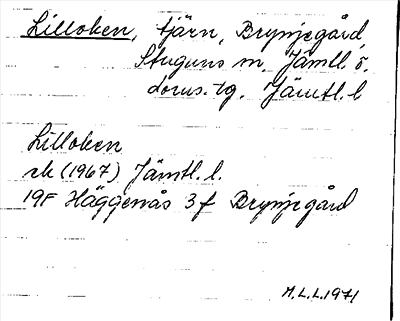 Lilloken, tjärn, Brynjegård,
Stuguns sn, Jämtl. ö.
doms. tg. Jämtl. l
Lilloken
rk (1967) Jämtl. l.
19F Häggenås 3f Brynjegård
M.L.L. 1971